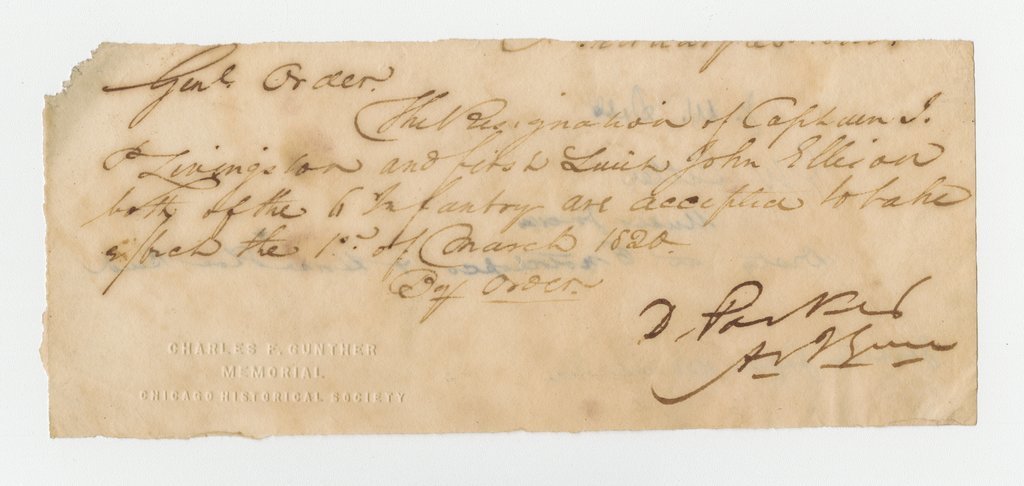 Genl Order.
The Resignation of Captain J.
P Livingston and first Lieut John Ellison
both of the 6 Infantry are accepted to take
effect the 1st of March 1820
By Order.
D. Parker
CHARLES F. GUNTHER
MEMORIAL
CHICAGO HISTORICAL SOCIETY